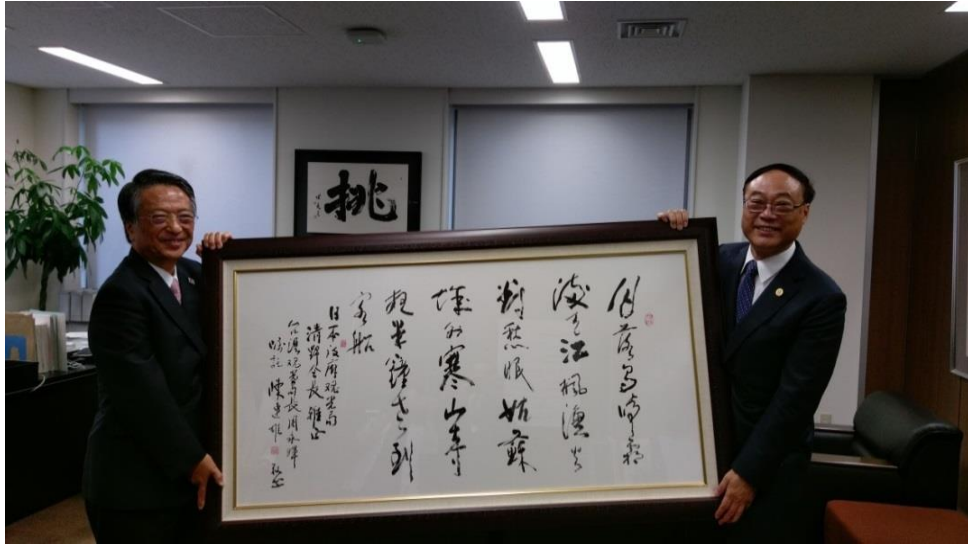 挑
月落烏啼霜
滿天江楓漁火
對愁眠姑蘇
城外寒山寺
夜半鐘聲到
客船
日本政府観光局
清野会長雅正
台湾観光局長周永暉
陳建雄